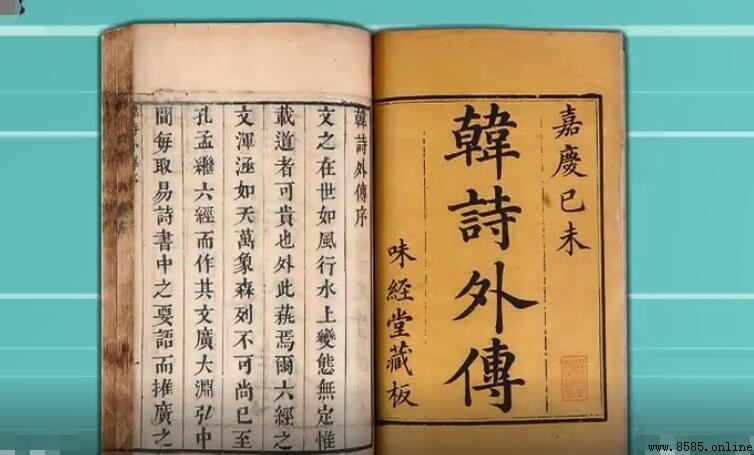 嘉慶己未
韓詩外傳
味經堂藏板
韓詩外傳序
文之在世如風行水上變態無定惟
載道者可貴也外此焉爾六經之
文渾涵如天萬象森列不可尚已至
孔孟繼六經而作其文廣大淵弘中
間每取易詩書中之要語而推廣之
www.8585.online